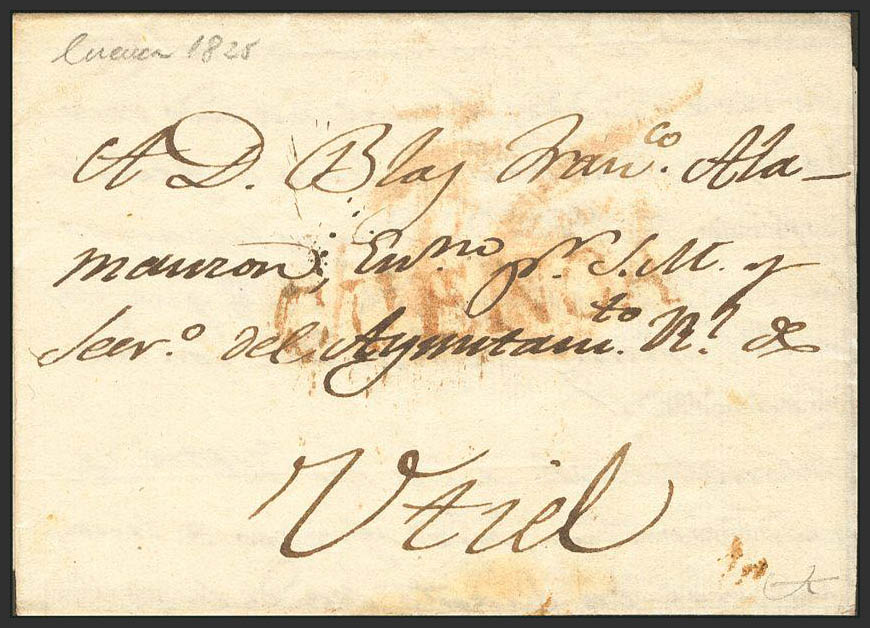 Cuenca 1825
A D. Blas Fran.co Ala-
manzon, Esn.no pr. S.M. y
Secr.o del Ayuntami.to Rl. de
CUENCA
Utiel